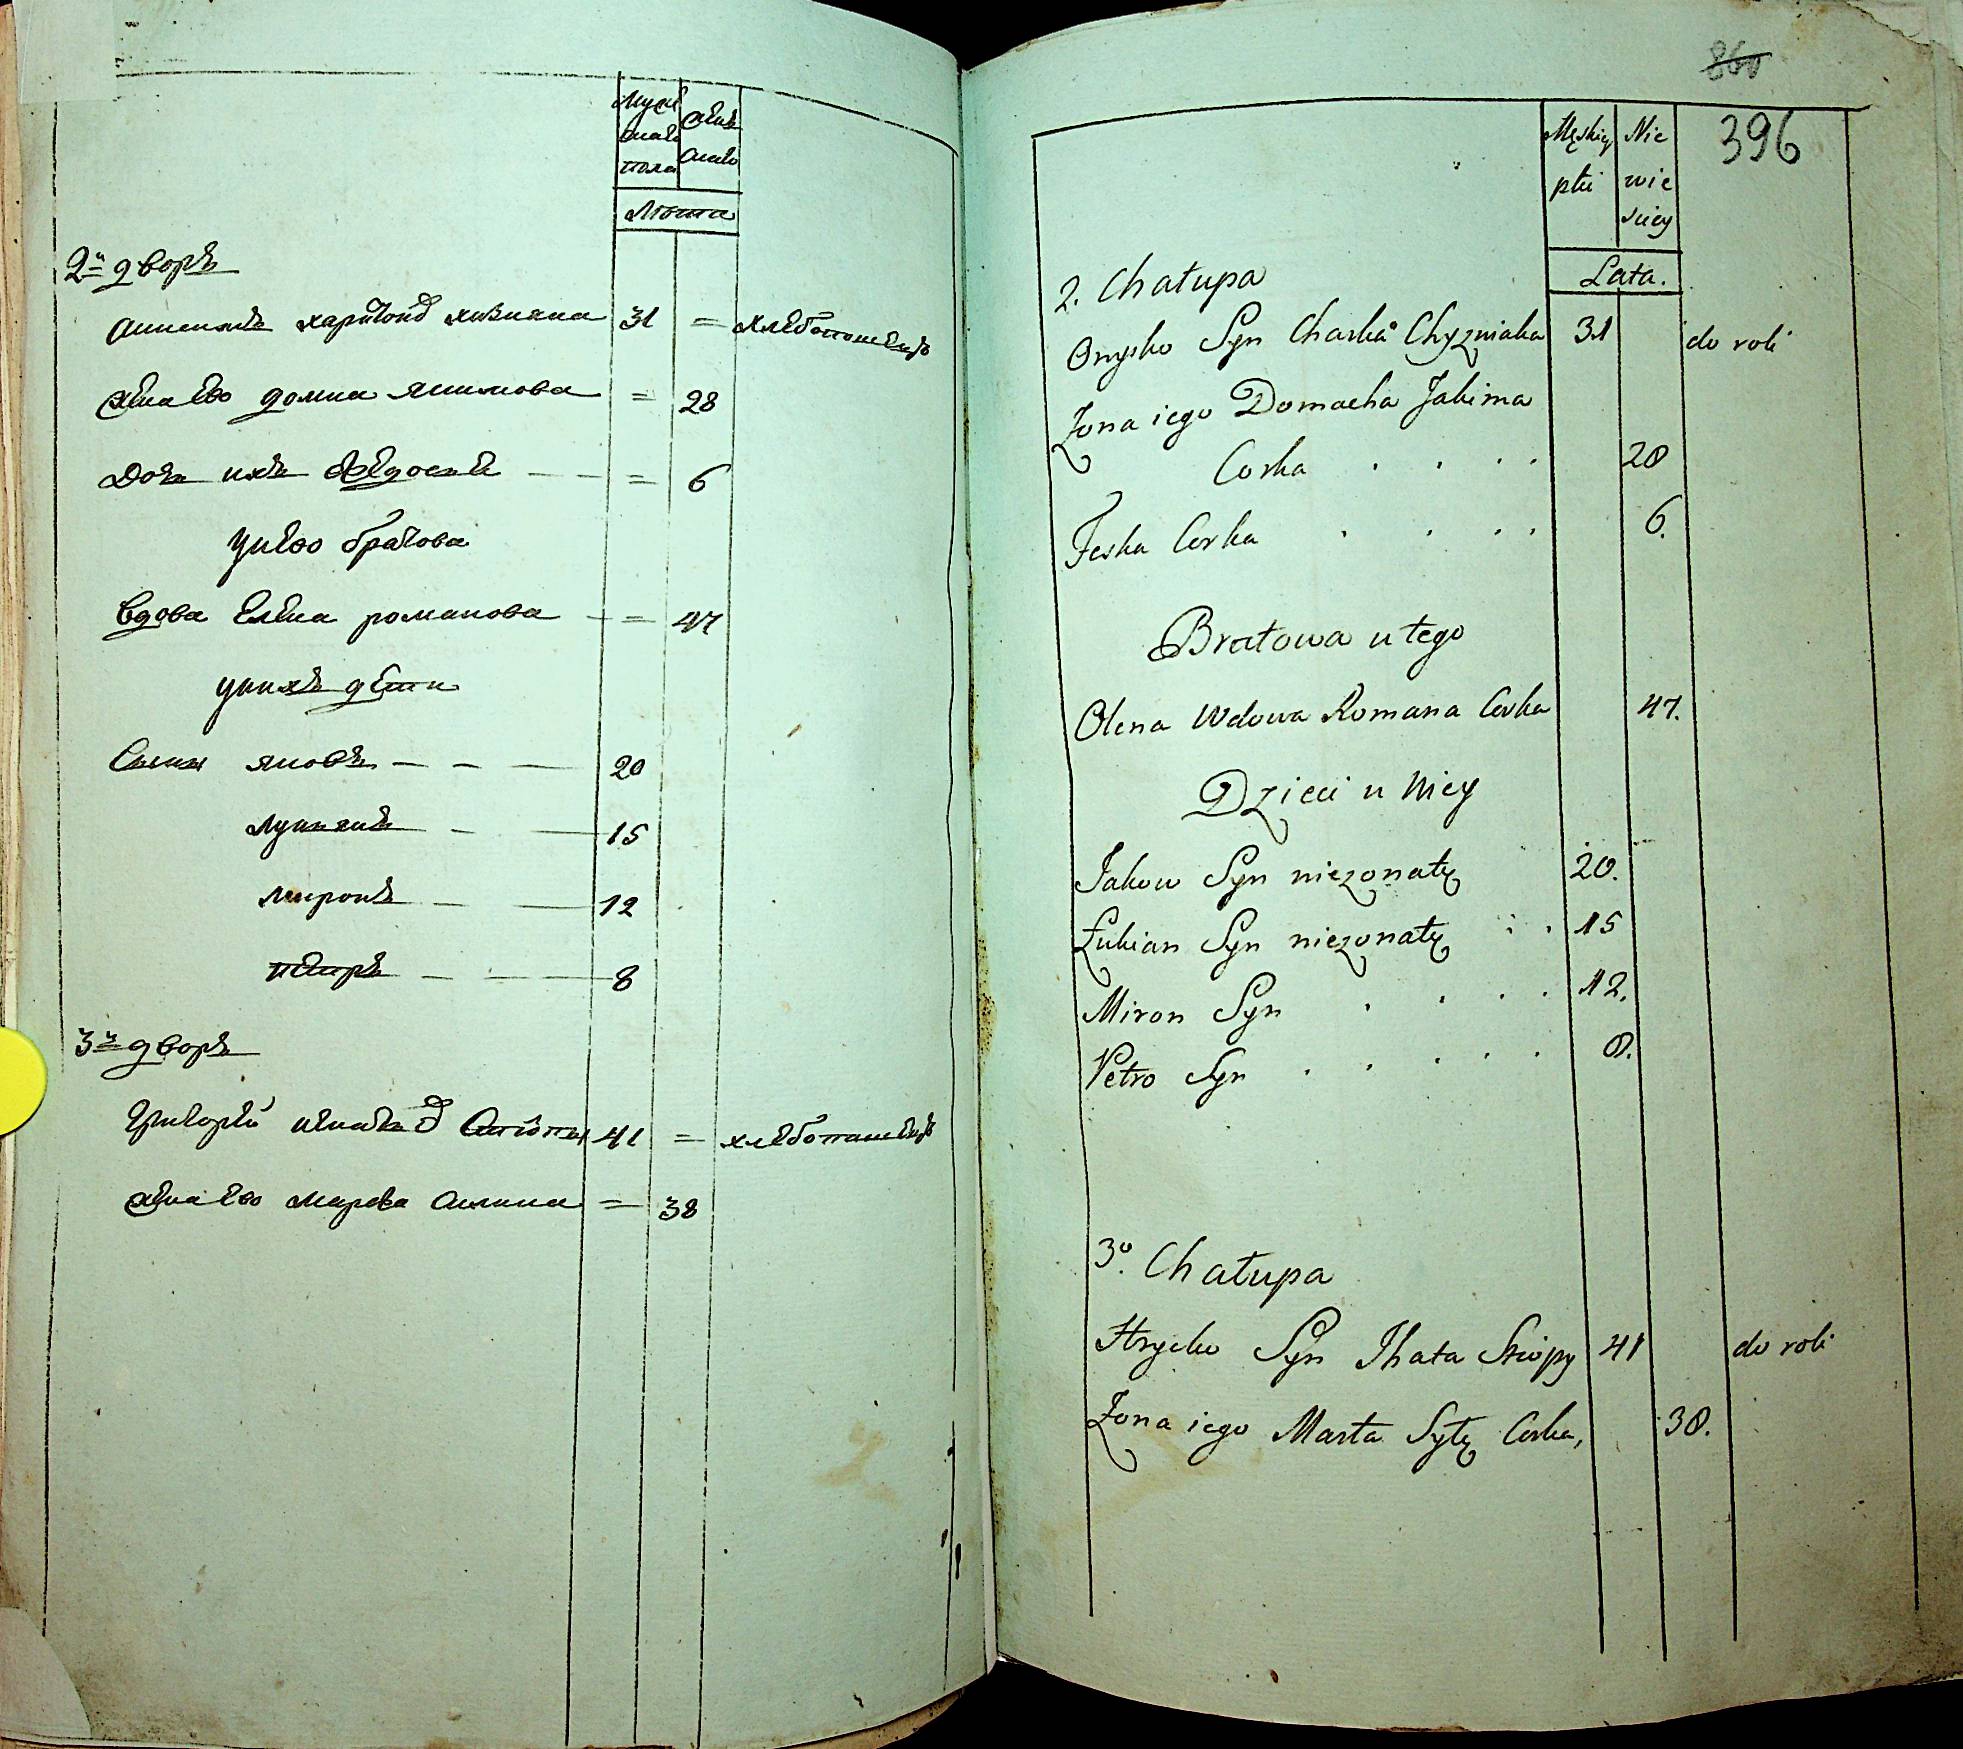 Муже
ска
пола
женс
каго
Лѣта
2й дворъ
Анисимъ харитонов хизняка 31 = хлебопашецъ
жена его домна якимова = 28
Дочь ихъ Федосья — — = 6
у него братова
вдова Елена романова — = 47
у нихъ дети
Сыны яковъ — — — 20
лукьянъ — — 15
миронъ — — 12
петръ — — 8
3й дворъ
григорей игнатов Стіопы 41 = хлебопашецъ
жена его марфа = 38
860
396
Męskiey
płci
Nie
wie
sciey
Lata.
2. Chałupa
Onysko Syn Charka Chyzniaka 31 do roli
Zona iego Domacha Jakima
Corka . . . . 28
Feska Corka . . . . 6.
Bratowa u tego
Olena Wdowa Romana Corka 47.
Dzieci u Niey
Jakow Syn niezonaty 20.
Łukian Syn niezonaty . . 15
Miron Syn . . . . 12.
Petro Syn . . . . . 8.
3o. Chałupa
Hrycko Syn Ihata Stiopy 41 do roli
Zona iego Marta Syty Corka, 38.